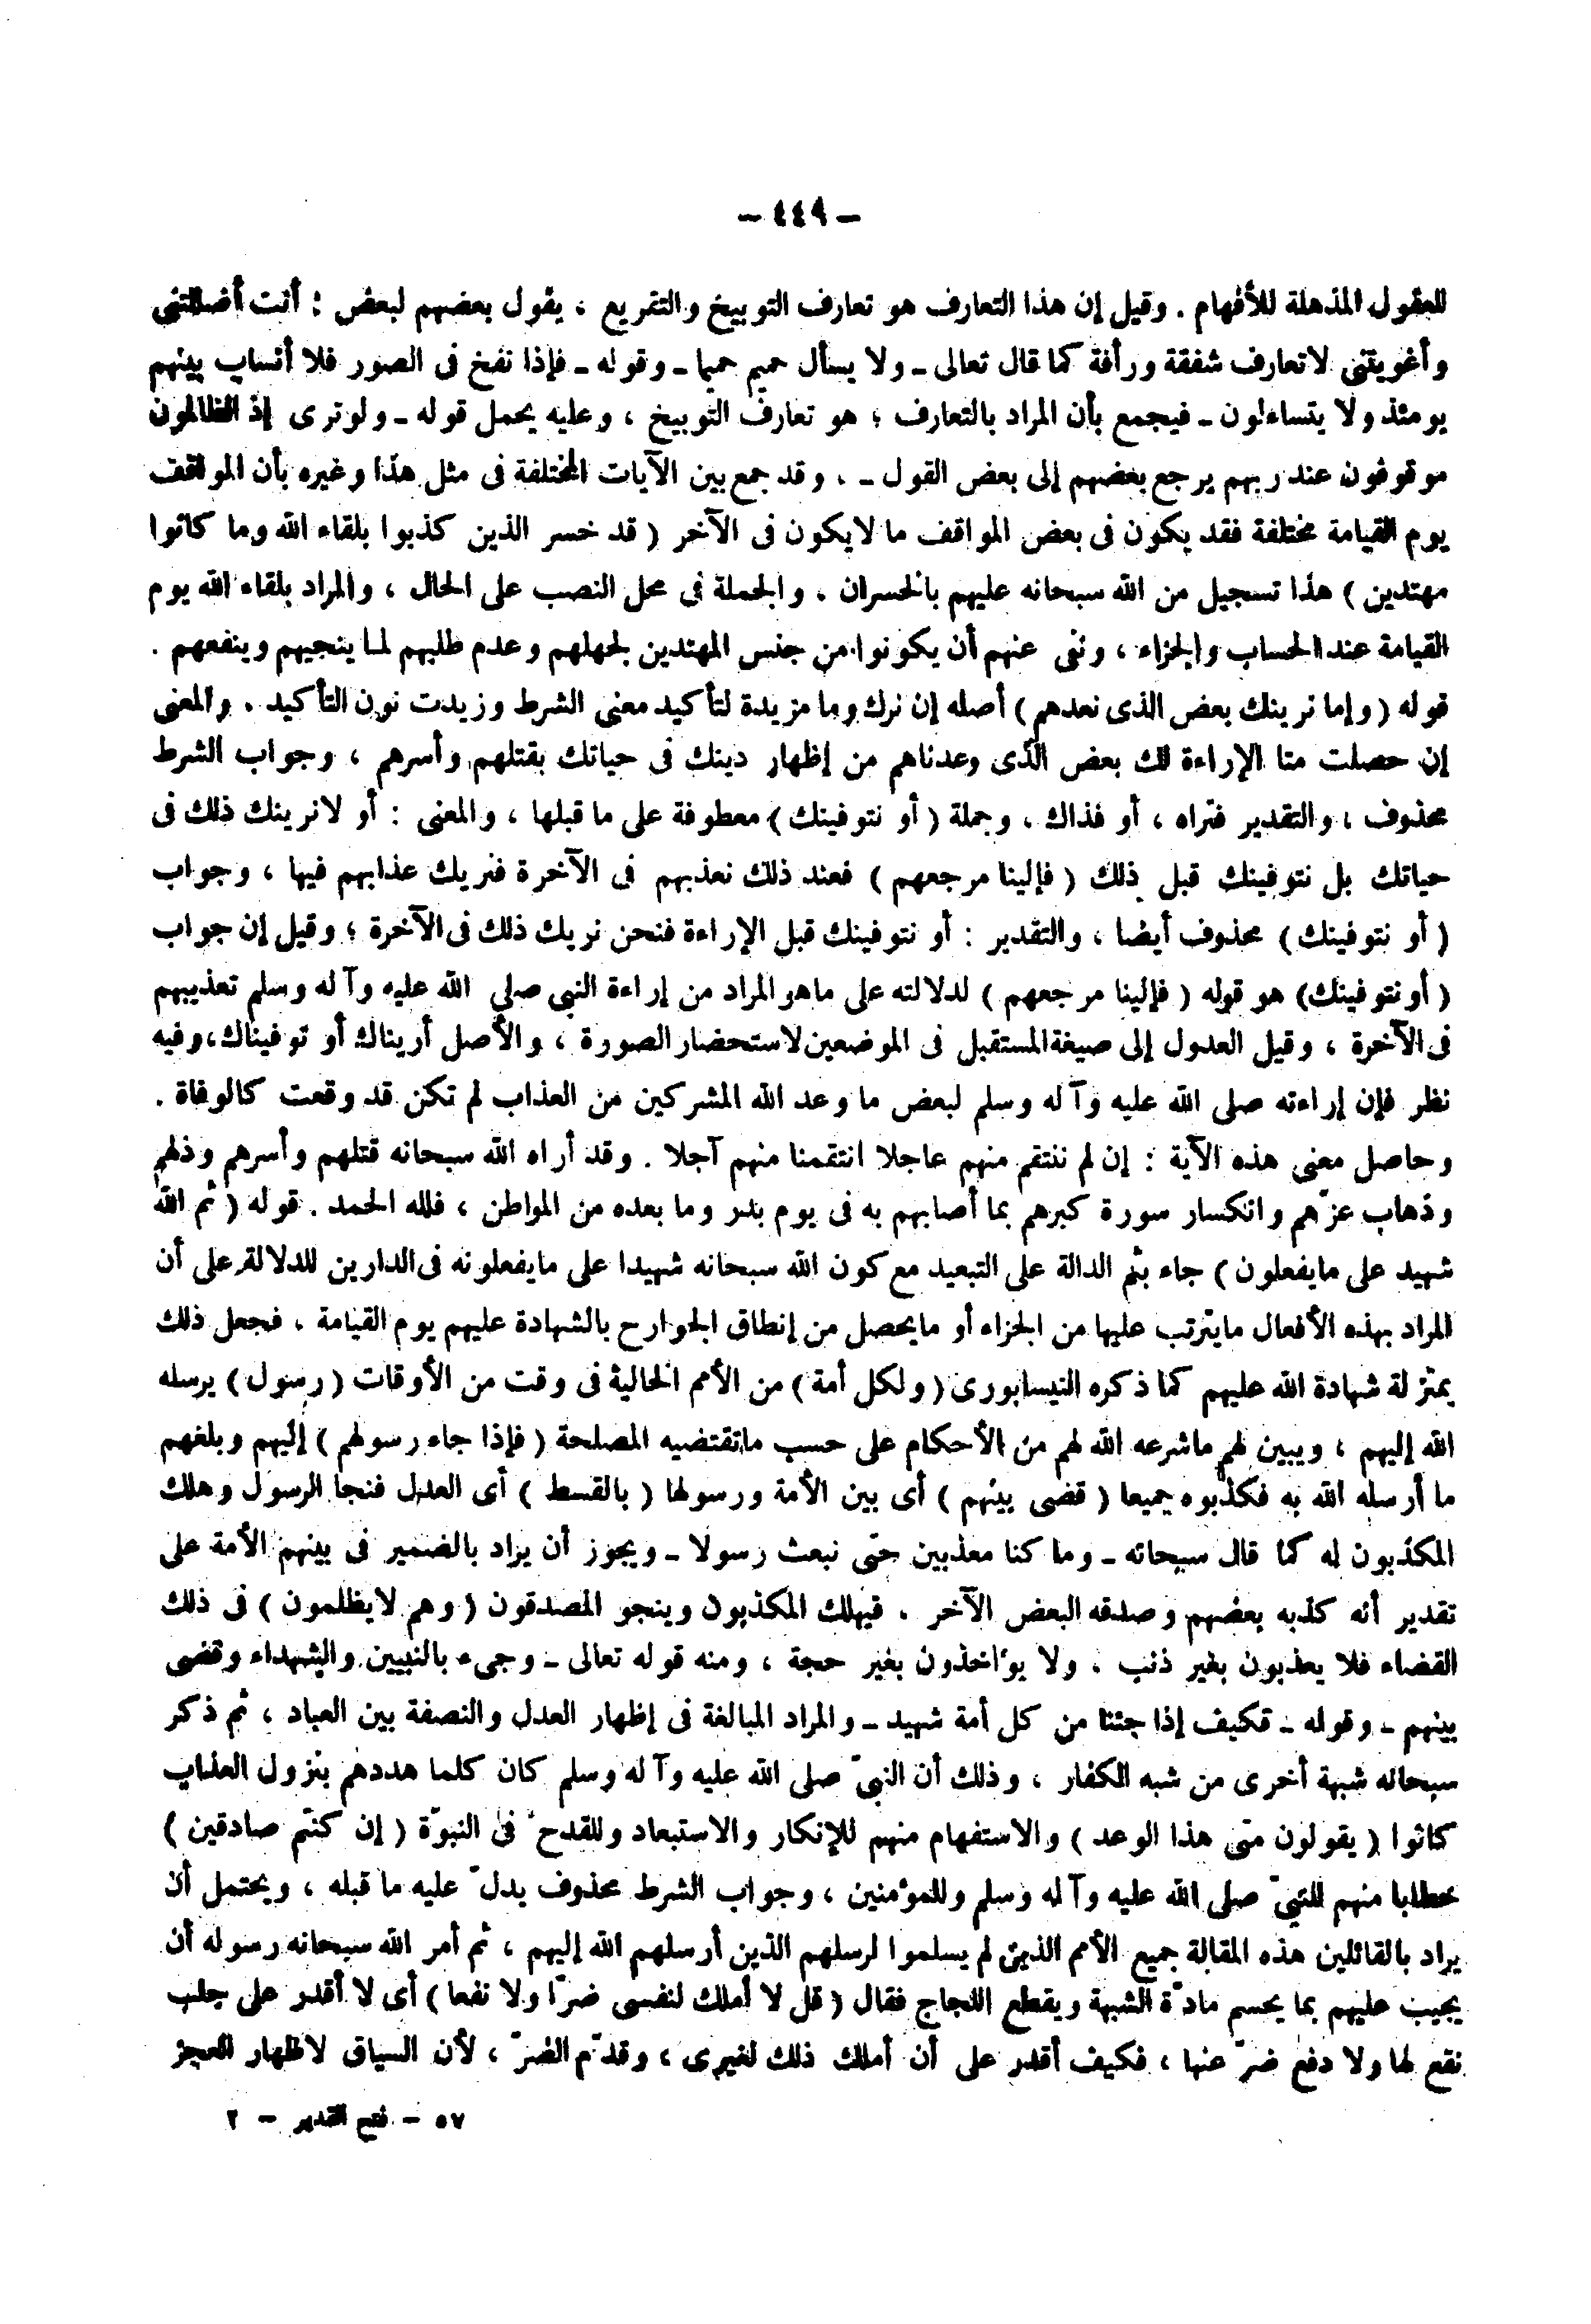 — ٤٤٩ —
للعقول المذهلة للأفهام . وقيل إن هذا التعارف هو تعارف التوبيخ والتقريع ، يقول بعضهم لبعض : أنت أضللتنى
وأغويتنى لاتعارف شفقة ورأفة كما قال تعالى ـ ولا يسأل حميم حميما ـ وقوله ـ فإذا نفخ فى الصور فلا أنساب بينهم
يومئذ ولا يتساءلون ـ فيجمع بأن المراد بالتعارف ؛ هو تعارف التوبيخ ، وعليه يحمل قوله ـ ولوترى إذ الظالمون
موقوفون عند ربهم يرجع بعضهم إلى بعض القول ـ . وقد جمع بين الآيات المختلفة فى مثل هذا وغيره بأن المواقف
يوم القيامة مختلفة فقد يكون فى بعض المواقف ما لايكون فى الآخر ( قد خسر الذين كذبوا بلقاء الله وما كانوا
مهتدين ) هذا تسجيل من الله سبحانه عليهم بالخسران . والجملة فى محل النصب على الحال ، والمراد بلقاء الله يوم
القيامة عند الحساب والجزاء ، ونفى عنهم أن يكونوا من جنس المهتدين لجهلهم وعدم طلبهم لما ينجيهم وينفعهم .
قوله ( وإما نرينك بعض الذى نعدهم ) أصله إن نرك وما مزيدة لتأكيد معنى الشرط وزيدت نون التأكيد . والمعنى
إن حصلت منا الإراءة لك بعض الذى وعدناهم من إظهار دينك فى حياتك بقتلهم وأسرهم ، وجواب الشرط
محذوف ، والتقدير فتراه ، أو فذاك ، وجملة ( أو نتوفينك ) معطوفة على ما قبلها ، والمعنى : أو لانرينك ذلك فى
حياتك بل نتوفينك قبل ذلك ( فإلينا مرجعهم ) فعند ذلك نعذبهم فى الآخرة فنريك عذابهم فيها ، وجواب
( أو نتوفينك ) محذوف أيضا ، والتقدير : أو نتوفينك قبل الإراءة فنحن نريك ذلك فى الآخرة ؛ وقيل إن جواب
( أو نتوفينك) هو قوله ( فإلينا مرجعهم ) لدلالته على ماهو المراد من إراءة النبى صلى الله عليه وآ له وسلم تعذيبهم
فى الآخرة ، وقيل العدول إلى صيغة المستقبل فى الموضعين لاستحضار الصورة ، والأصل أريناك أو توفيناك، وفيه
نظر فإن إراءته صلى الله عليه وآ له وسلم لبعض ما وعد الله المشركين من العذاب لم تكن قد وقعت كالوفاة .
وحاصل معنى هذه الآية : إن لم ننتقم منهم عاجلا انتقمنا منهم آجلا . وقد أراه الله سبحانه قتلهم وأسرهم وذلهم
وذهاب عزّهم وانكسار سورة كبرهم بما أصابهم به فى يوم بدر وما بعده من المواطن ، فلله الحمد . قوله ( ثم الله
شهيد على مايفعلون ) جاء بثم الدالة على التبعيد مع كون الله سبحانه شهيدا على مايفعلونه فى الدارين للدلالة على أن
المراد بهذه الأفعال مايترتب عليها من الجزاء أو مايحصل من إنطاق الجوارح بالشهادة عليهم يوم القيامة ، فجعل ذلك
بمنزلة شهادة الله عليهم كما ذكره النيسابورى ( ولكل أمة ) من الأمم الخالية فى وقت من الأوقات ( رسول ) يرسله
الله إليهم ، ويبين لهم ماشرعه الله لهم من الأحكام على حسب ماتقتضيه المصلحة ( فإذا جاء رسولهم ) إليهم وبلغهم
ما أرسله الله به فكذبوه جميعا ( قضى بينهم ) أى بين الأمة ورسولها ( بالقسط ) أى العدل فنجا الرسول وهلك
المكذبون له كما قال سبحانه ـ وما كنا معذبين حتى نبعث رسولا ـ ويجوز أن يراد بالضمير فى بينهم الأمة على
تقدير أنه كذبه بعضهم وصدقه البعض الآخر . فيهلك المكذبون وينجو المصدقون ( وهم لايظلمون ) فى ذلك
القضاء فلا يعذبون بغير ذنب ، ولا يؤاخذون بغير حجة ، ومنه قوله تعالى ـ وجىء بالنبيين والشهداء وقضى
بينهم ـ وقوله ـ فكيف إذا جئنا من كل أمة شهيد ـ والمراد المبالغة فى إظهار العدل والنصفة بين العباد ، ثم ذكر
سبحانه شبهة أخرى من شبه الكفار ، وذلك أن النبىّ صلى الله عليه وآ له وسلم كان كلما هددهم بنزول العذاب
كانوا ( يقولون متى هذا الوعد ) والاستفهام منهم للإنكار والاستبعاد وللقدح فى النبوّة ( إن كنتم صادقين )
خطابا منهم للنبىّ صلى الله عليه وآ له وسلم وللمؤمنين ، وجواب الشرط محذوف يدلّ عليه ما قبله ، ويحتمل أن
يراد بالقائلين هذه المقالة جميع الأمم الذين لم يسلموا لرسلهم الذين أرسلهم الله إليهم ، ثم أمر الله سبحانه رسوله أن
يجيب عليهم بما يحسم مادّة الشبهة ويقطع اللجاج فقال ( قل لا أملك لنفسى ضرّا ولا نفعا ) أى لا أقدر على جلب
نفع لها ولا دفع ضرّ عنها ، فكيف أقدر على أن أملك ذلك لغيرى ، وقدّم الضرّ ، لأن السياق لاظهار العجز
٥٧ — فتح القدير — ٢